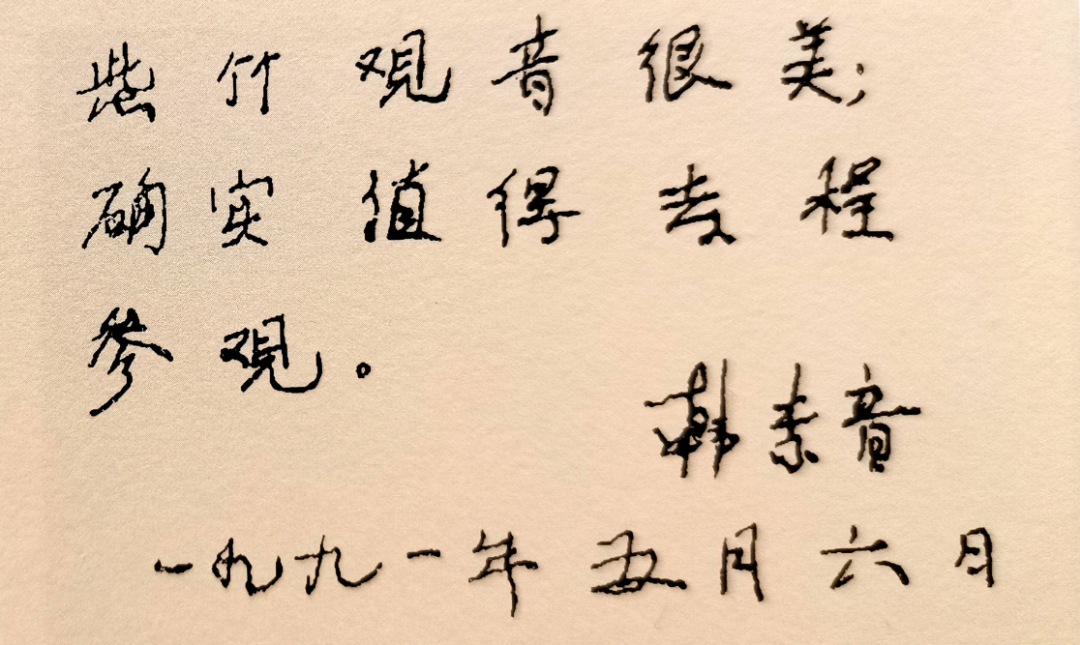 紫竹观音很美;
确实值得去程
参观。
韩素音
一九九一年五月六日